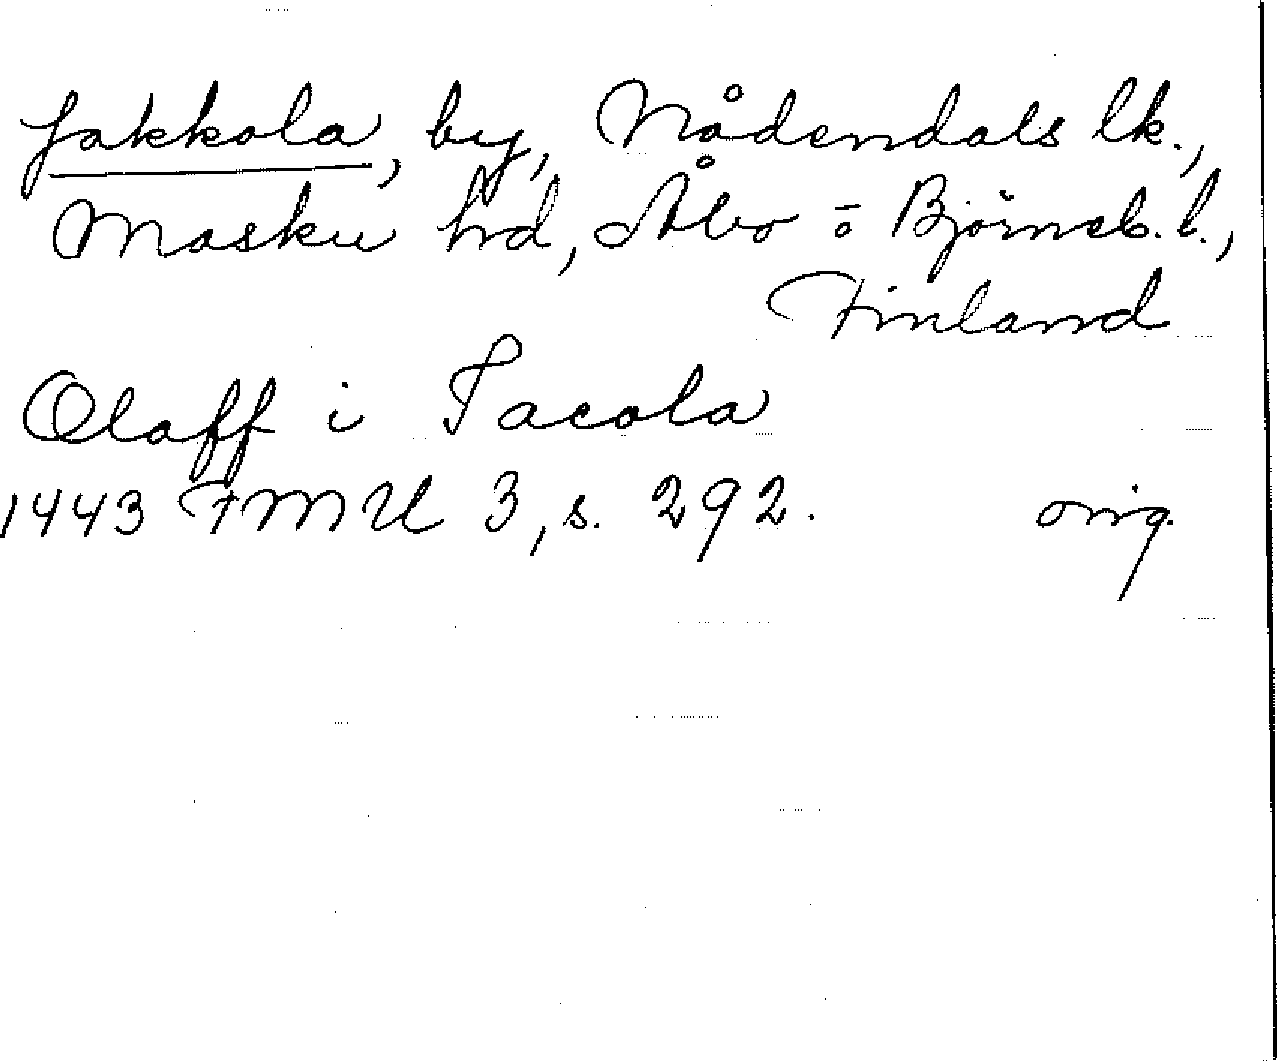 Jakkola, by, Nådendals lk.,
Masku hd, Åbo o Björneb. l.,
Finland
Olaff i Jacola
1443 FMU 3, s. 292. orig.